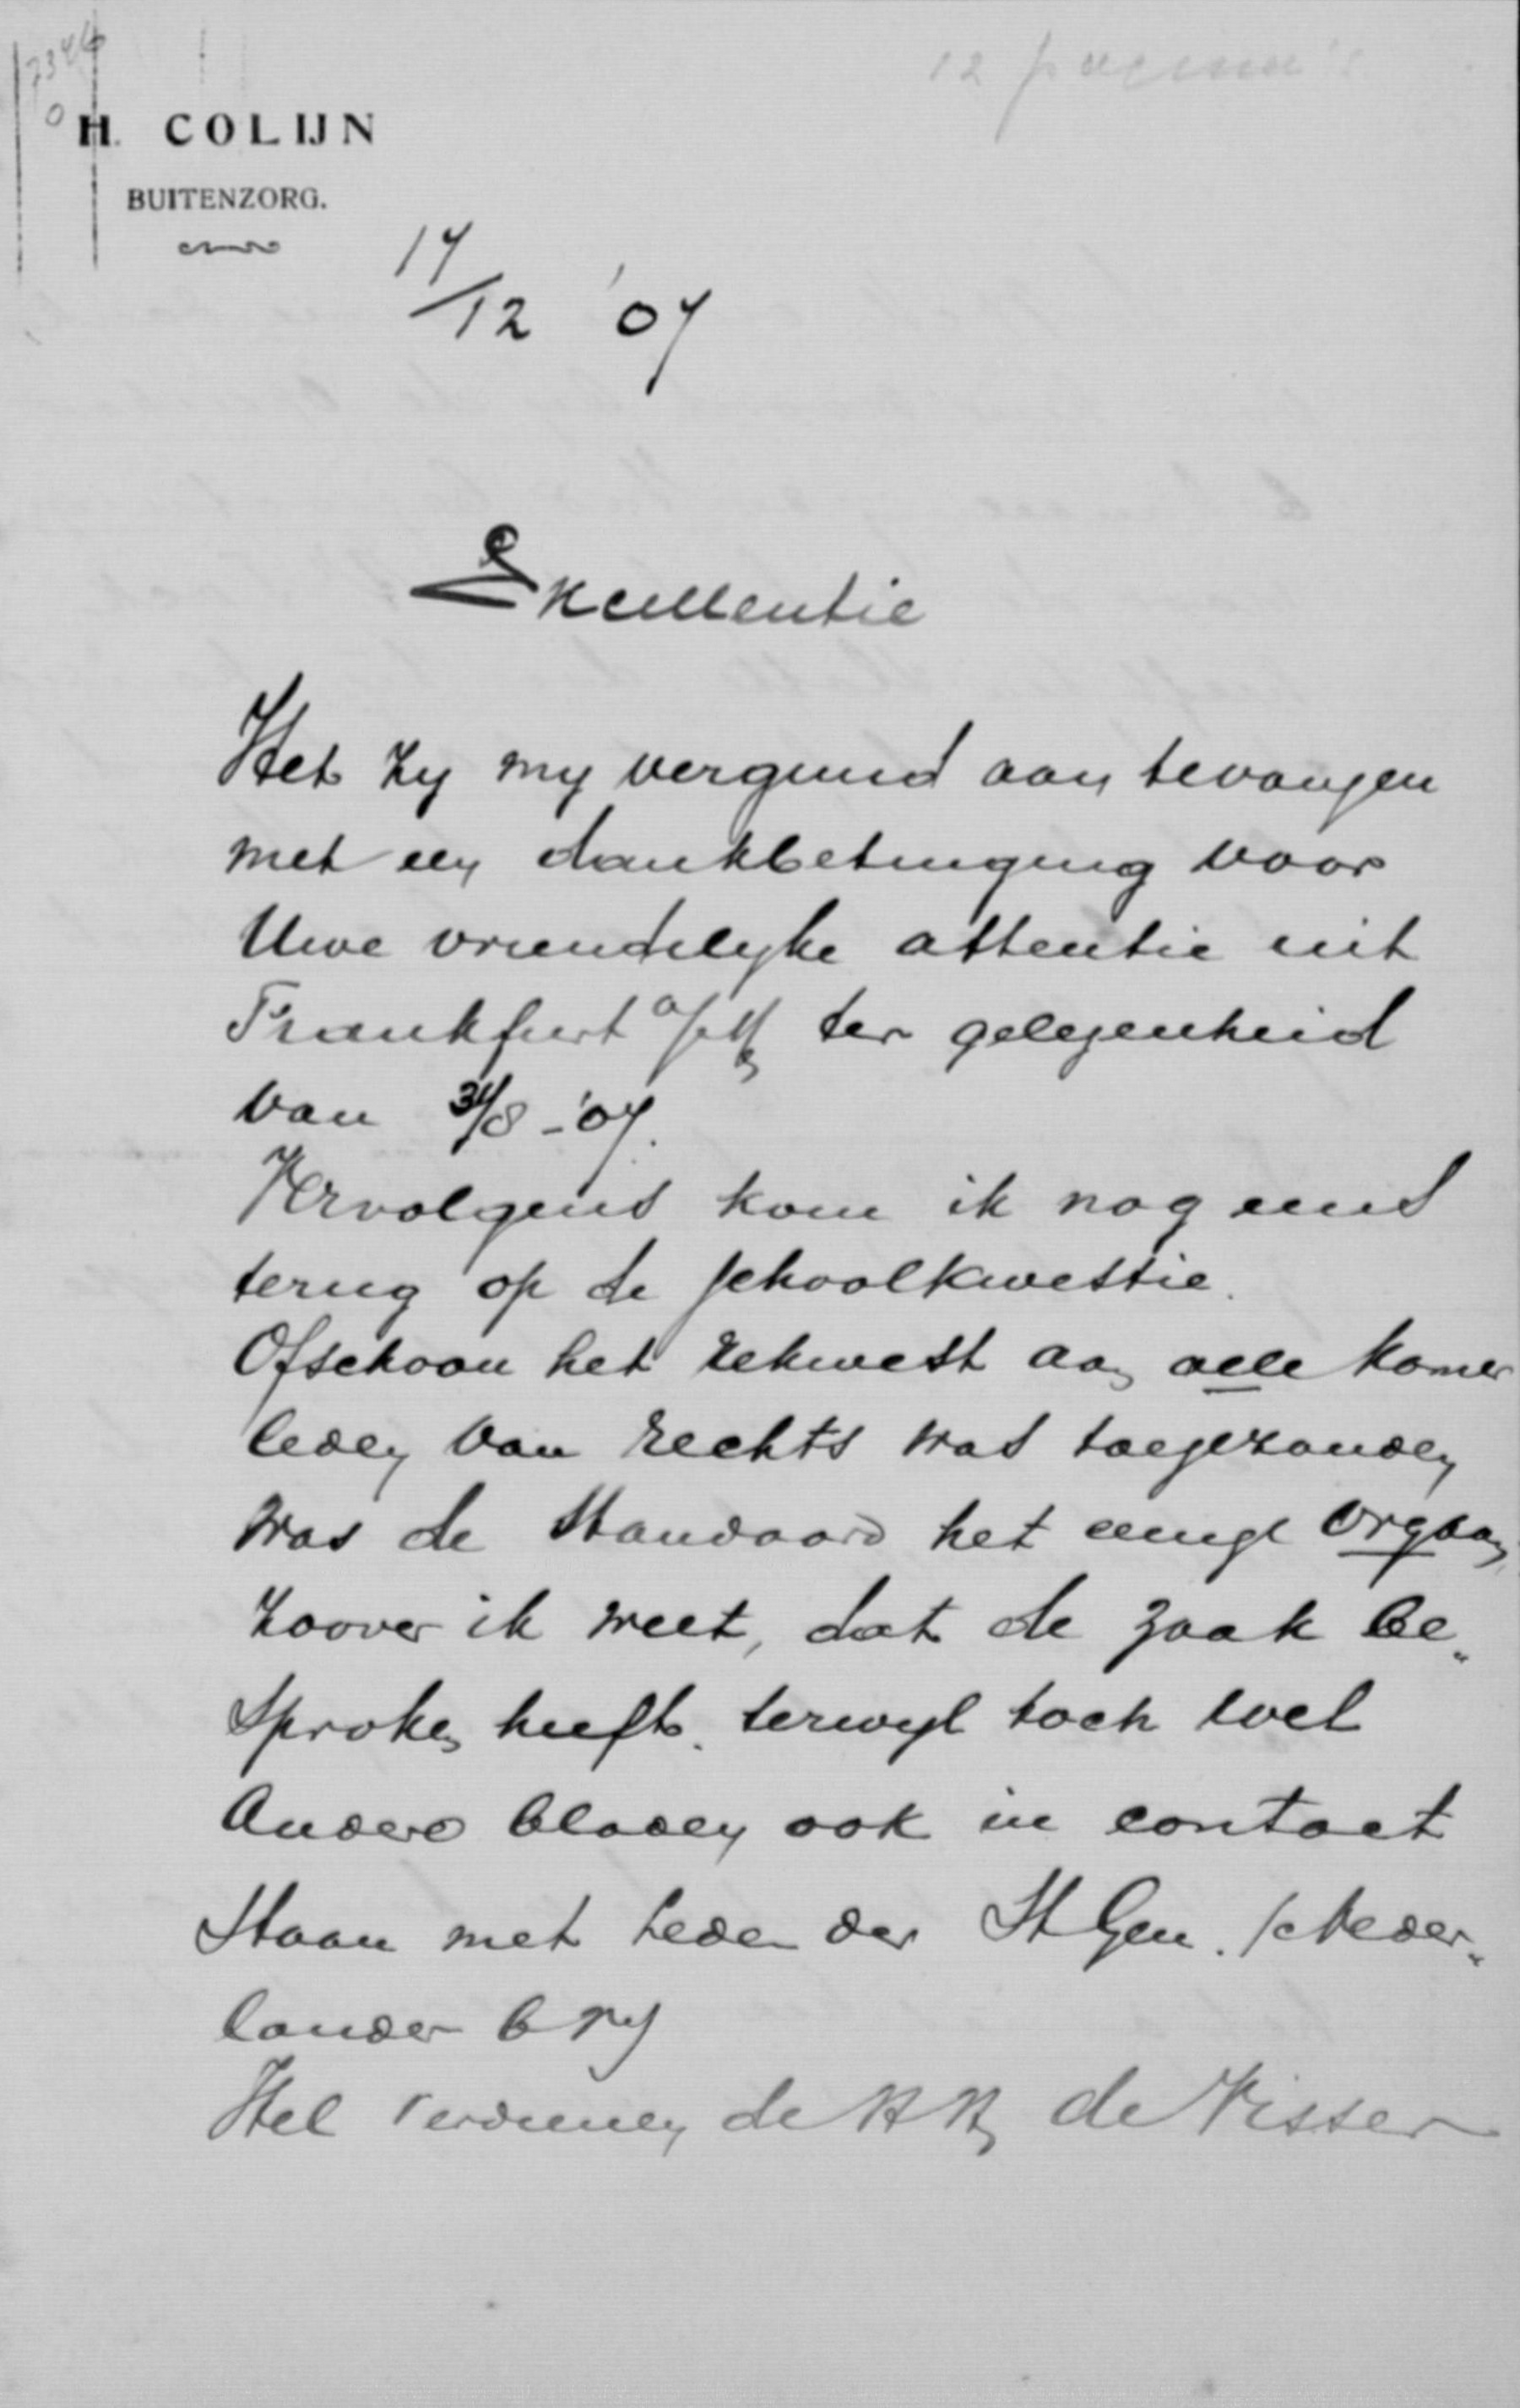 7346
0
12 pagina's
H. COLIJN
BUITENZORG.
17/12 '07
Excellentie
Het zy my vergund aan te vangen
met een dankbetuiging voor
Uwe vriendelyke attentie uit
Frankfurt a/M ter gelegenheid
van 31/8 - '07.
Vervolgens kom ik nog eens
terug op de schoolkwestie.
Ofschoon het rekwest aan alle kamer
leden van rechts was toegezonden
was de Standaard het eenige orgaan,
zoover ik weet, dat de zaak be„
sproken heeft. terwyl toch wel
andere bladen ook in contact
staan met leden der St Gen. (Neder„
lander b v)
Wel verdienen de HH de Visser